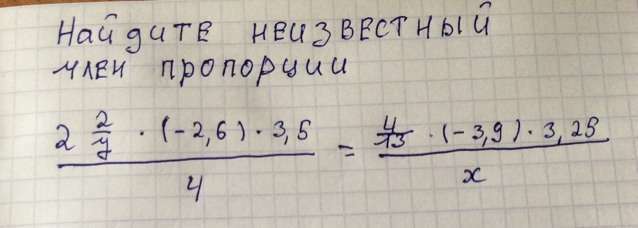 Найдите неизвестный
член пропорции
2 2/7 · (-2,6) · 3,5 = 4/13 · (-3,9) · 3,25
4 x